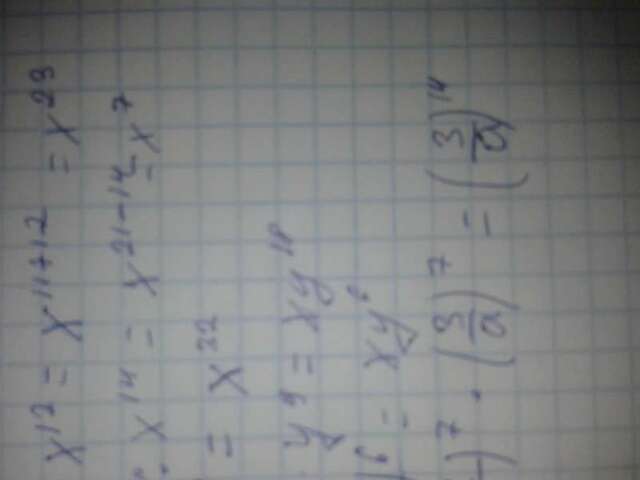 x¹² = x¹¹⁺¹² = x²³
: x¹⁴ = x²¹⁻¹⁴ = x⁷
= x²²
y⁹ = xy¹⁸
)⁶ = xy⁶
)⁷ · (3/a)⁷ = (3/a)¹⁴